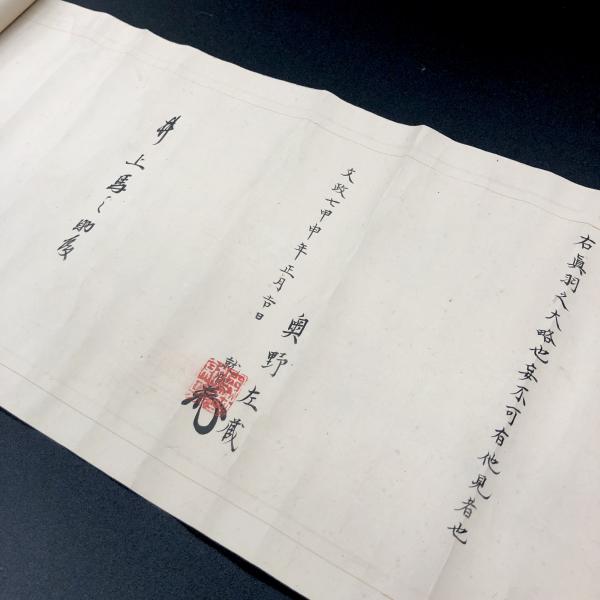 右眞羽之大略也妄不可有他見者也
文政七甲申年正月吉日
奥野左蔵
井上馬之助殿